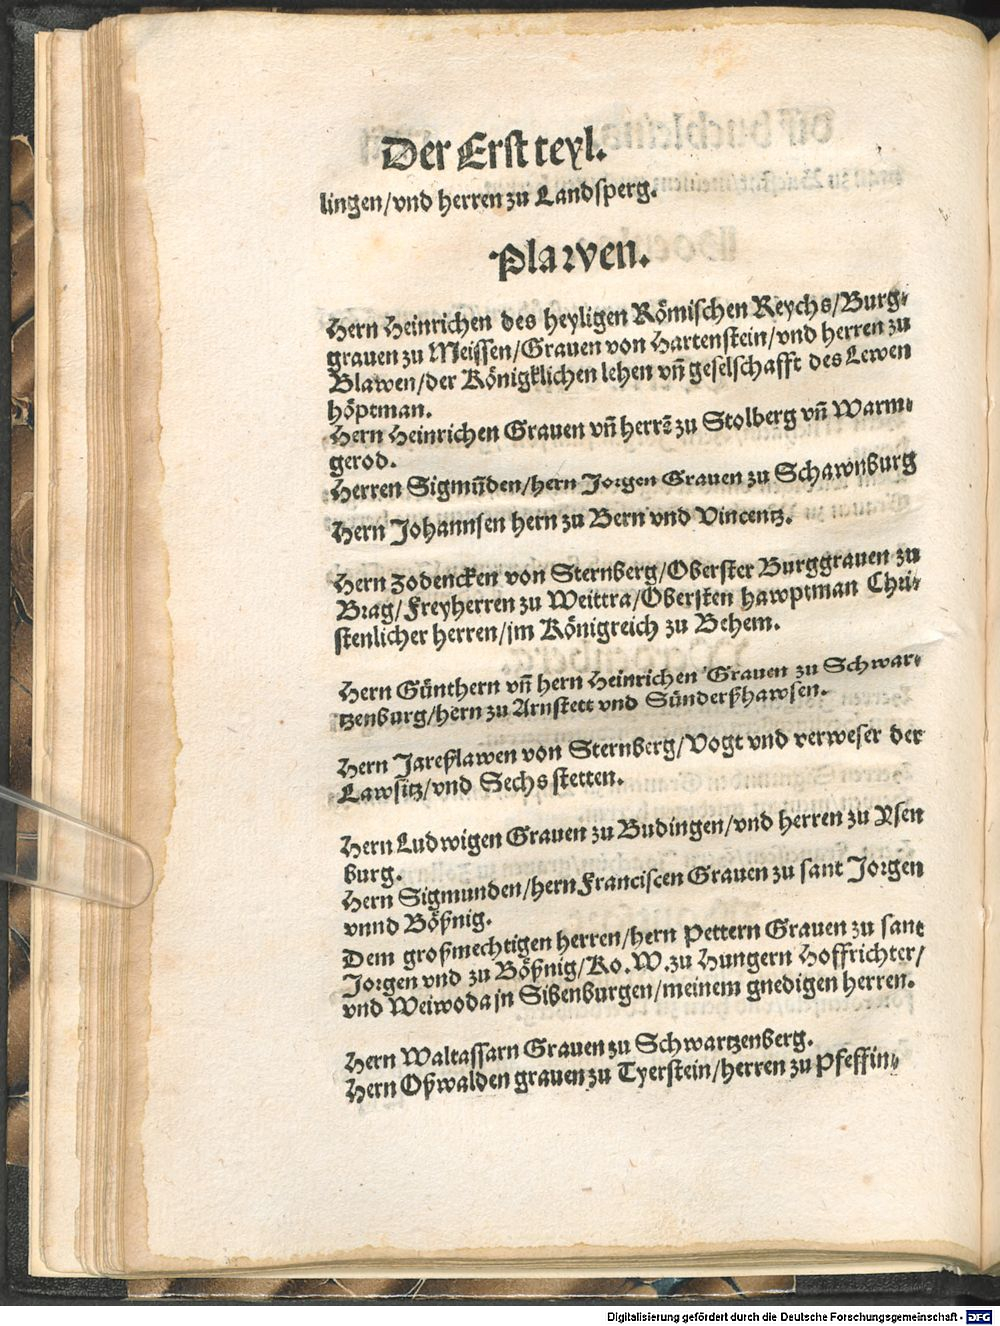 Der Erst teyl.
lingen/vnd herren zu Landsperg.
Plawen.
Hern Heinrichen des heyligen Römischen Reychs/Burg-
grauen zu Meissen/Grauen von Hartenstein/vnd herren zu
Blawen/der Königklichen lehen vñ geselschafft des Lewen
höptman.
Hern Heinrichen Grauen vñ herrẽ zu Stolberg vñ Warm-
gerod.
Herren Sigmũden/hern Jorgen Grauen zu Schawnburg
Hern Johannsen hern zu Bern vnd Vincentz.
Hern Zodencken von Sternberg/Oberster Burggrauen zu
Brag/Freyherren zu Weittra/Obersten hawptman Chri-
stenlicher herren/jm Königreich zu Behem.
Hern Günthern vñ hern Heinrichen Grauen zu Schwar-
tzenburg/hern zu Arnstett vnd Sünderßhawsen.
Hern Jareßlawen von Sternberg/Vogt vnd verweser der
Lawsitz/vnd Sechs stetten.
Hern Ludwigen Grauen zu Budingen/vnd herren zu Ysen
burg.
Hern Sigmunden/hern Franciscen Grauen zu sant Jorgen
vnnd Bößnig.
Dem großmechtigen herren/hern Pettern Grauen zu sant
Jorgen vnd zu Bößnig/Ko.W.zu Hungern Hoffrichter/
vnd Weiwoda jn Sibenburgen/meinem gnedigen herren.
Hern Waltassarn Grauen zu Schwartzenberg.
Hern Oßwalden grauen zu Tyerstein/herren zu Pfeffin-
Digitalisierung gefördert durch die Deutsche Forschungsgemeinschaft - DFG